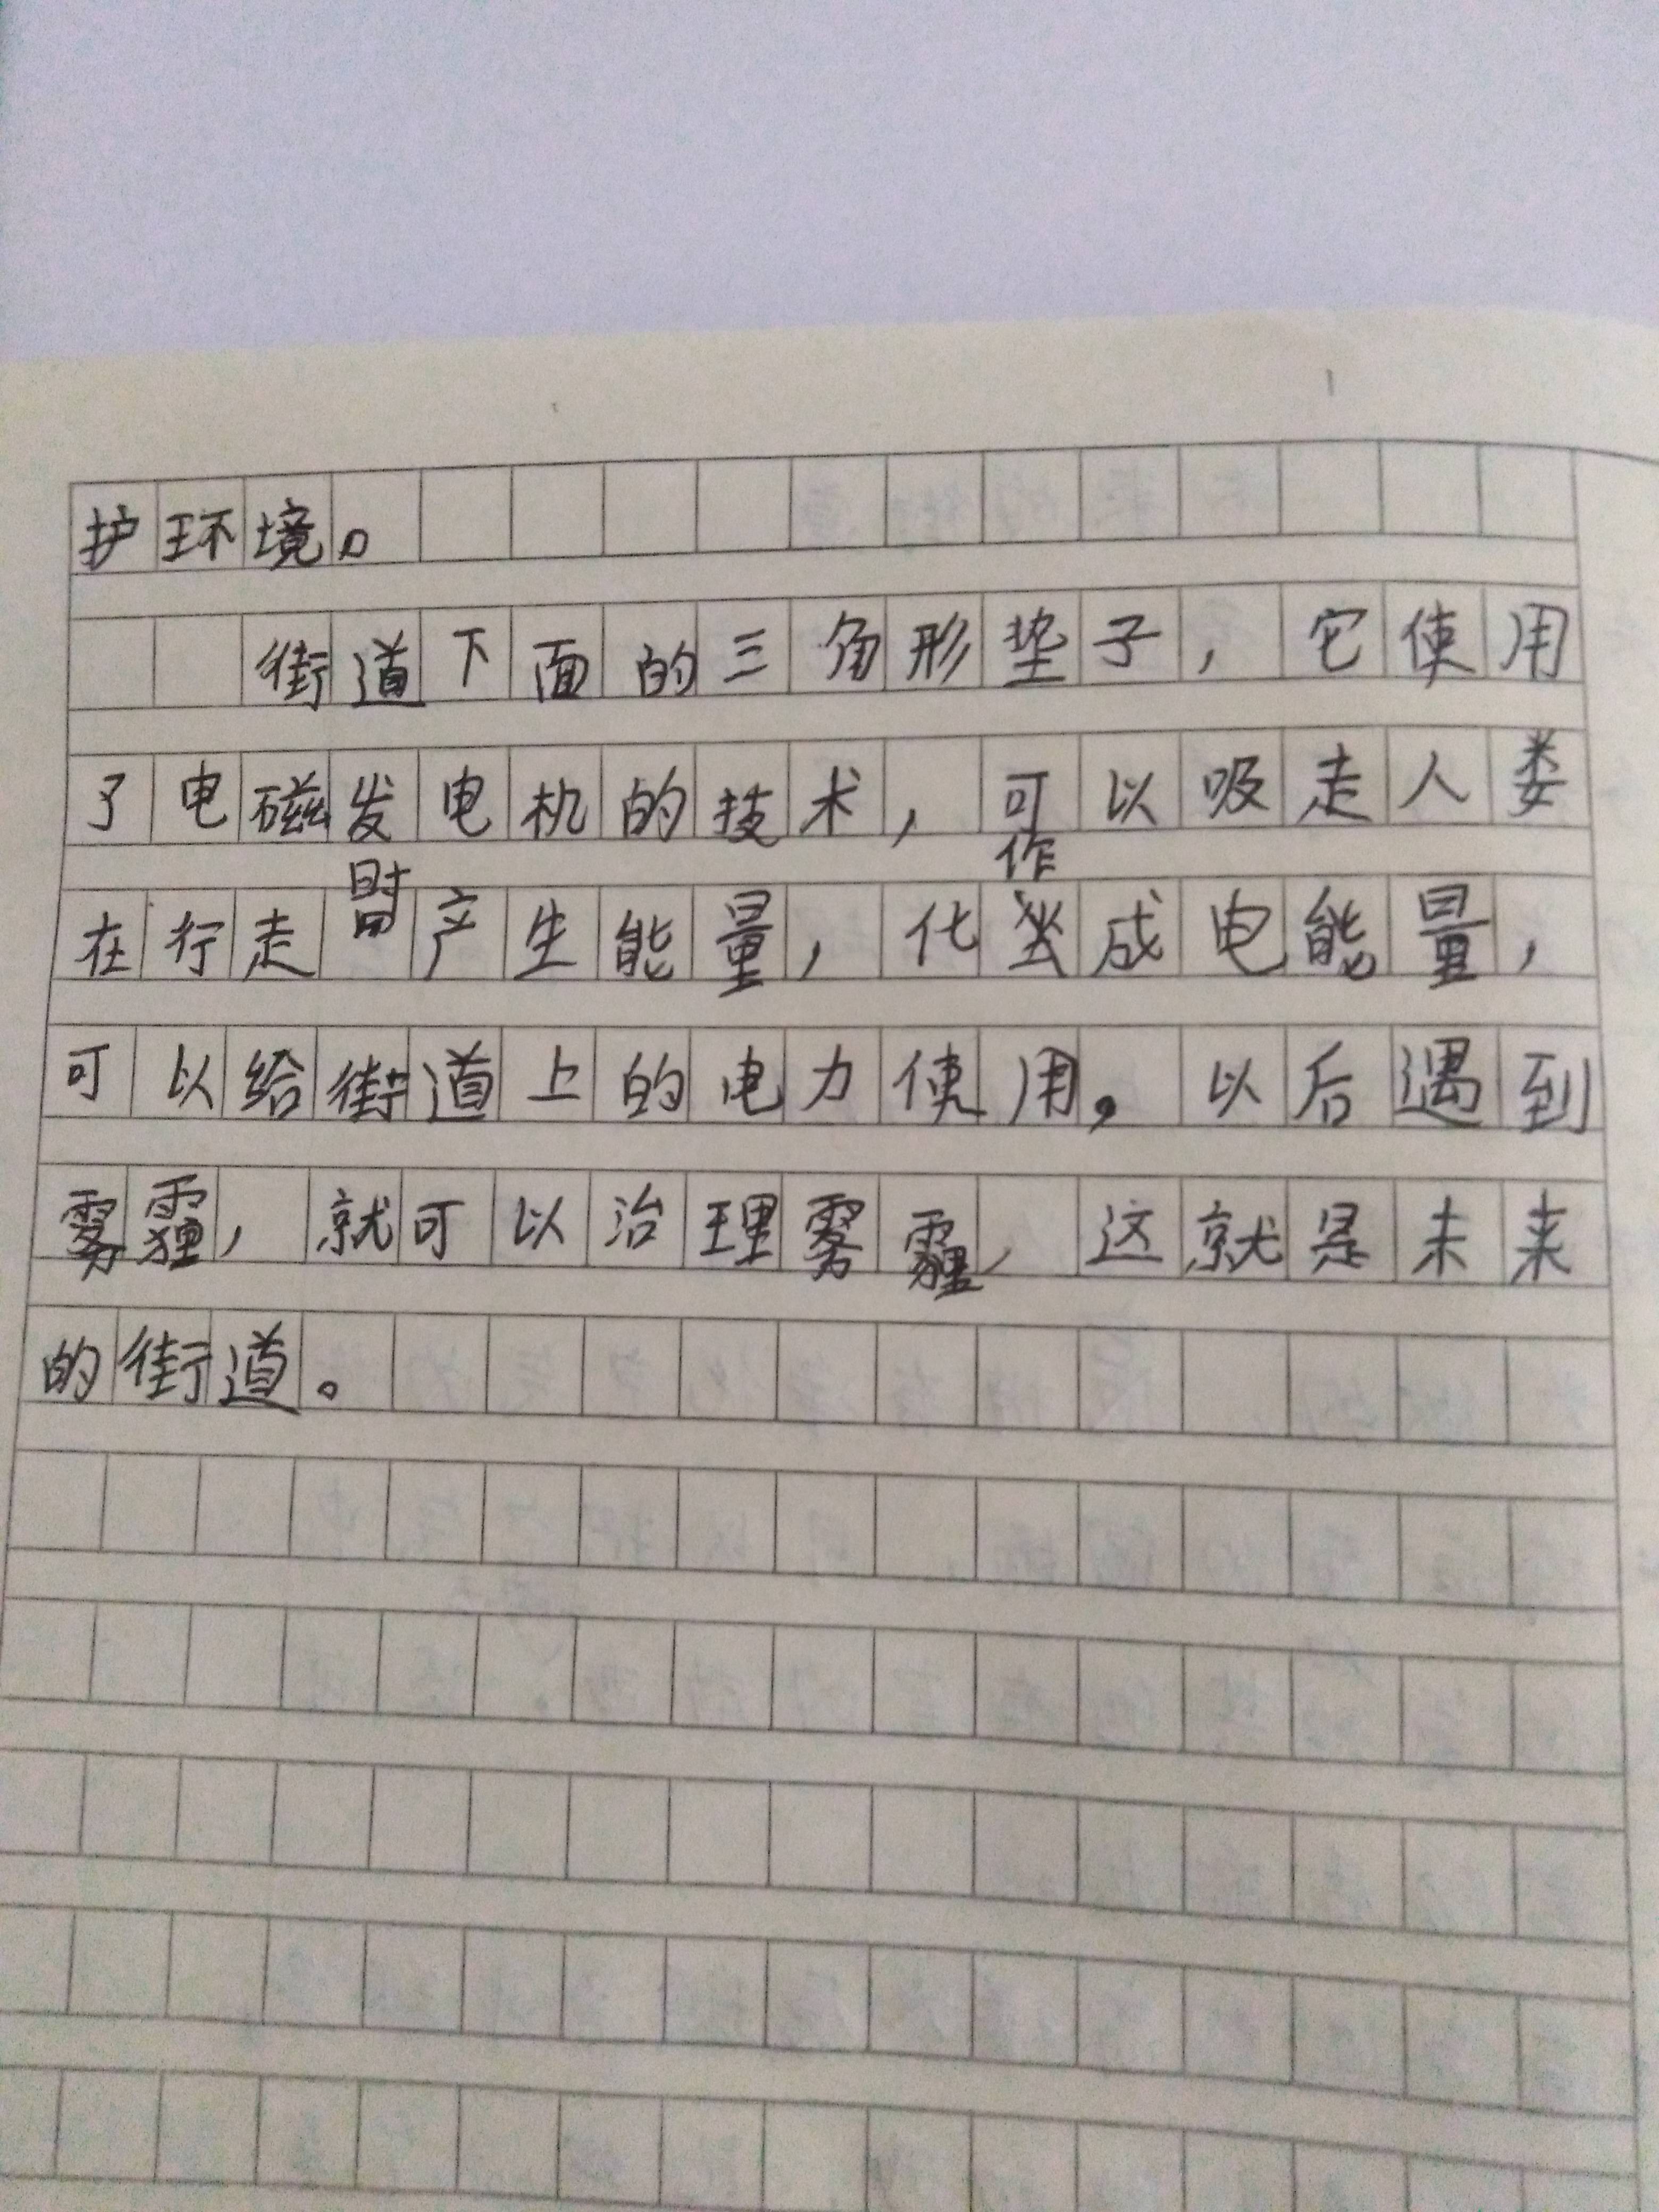 护环境。
街道下面的三角形垫子，它使用
了电磁发电机的技术，可以吸走人娄
在行走时产生能量，化作成电能量，
可以给街道上的电力使用。以后遇到
雾霾，就可以治理雾霾，这就是未来
的街道。